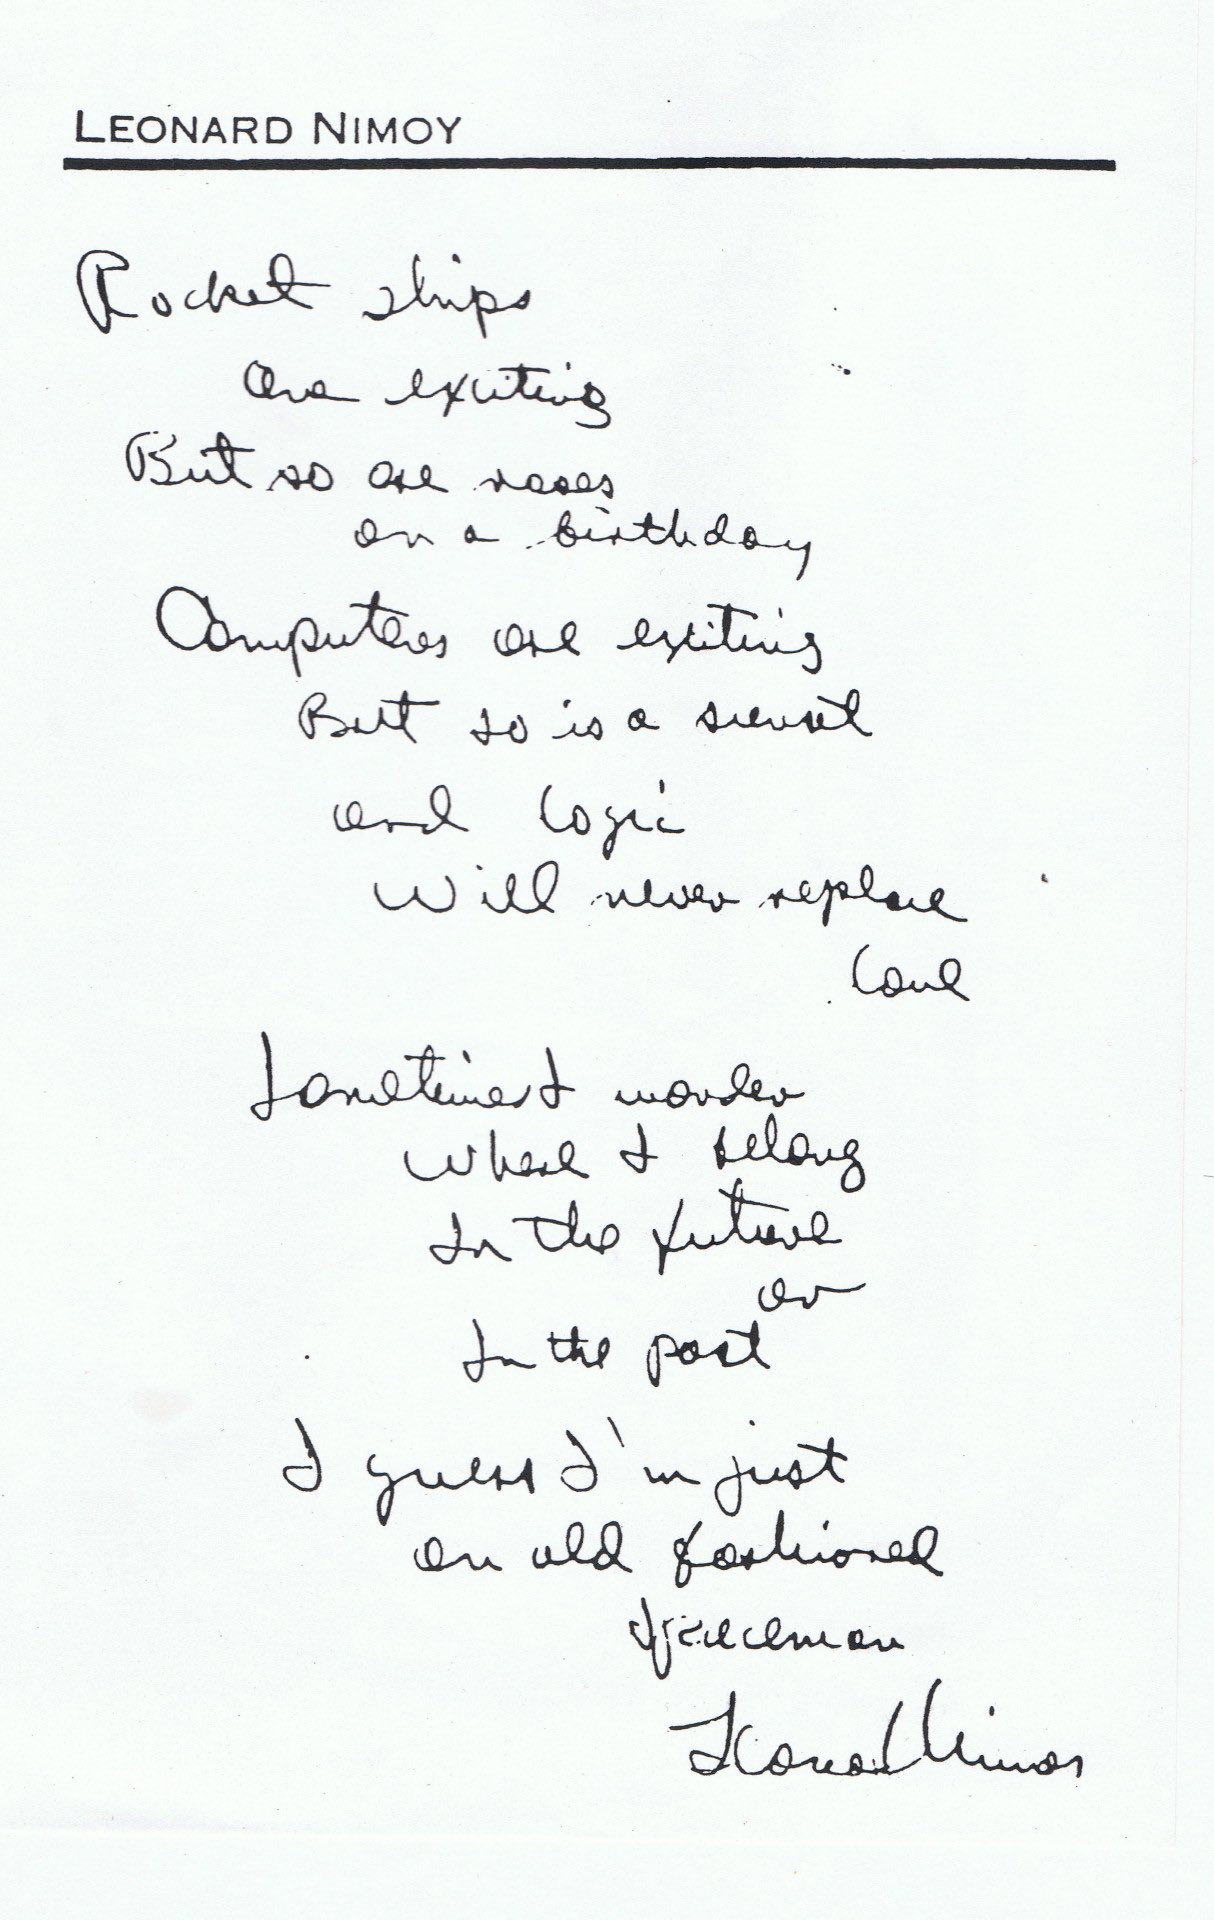 LEONARD NIMOY
Rocket ships
are exciting
But so are roses
on a birthday
Computers are exciting
But so is a sunset
and logic
Will never replace
Love
Sometimes I wonder
where I belong
In the future
or
In the past
I guess I'm just
an old fashioned
Spaceman
Leonard Nimoy